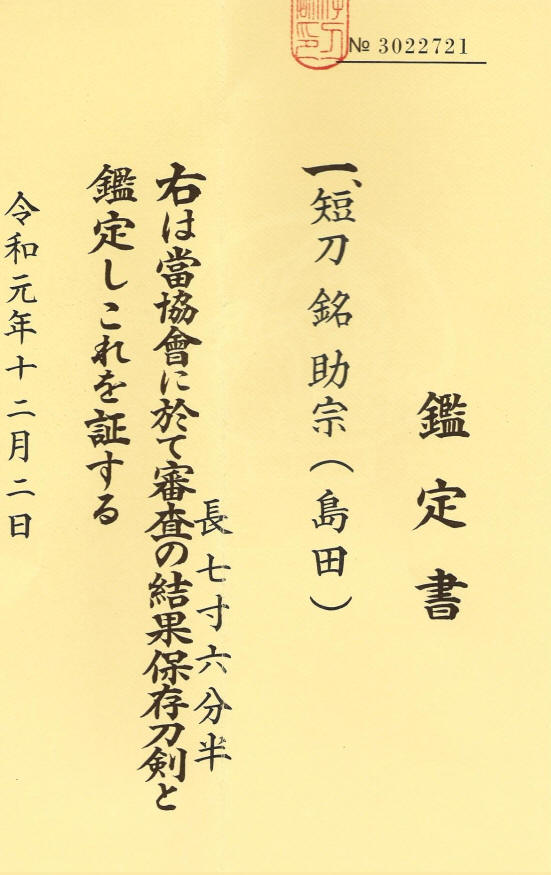 № 3022721
鑑定書
一、短刀 銘 助宗(島田)
長七寸六分半
右は當協會に於て審査の結果保存刀剣と
鑑定しこれを証する
令和元年十二月二日